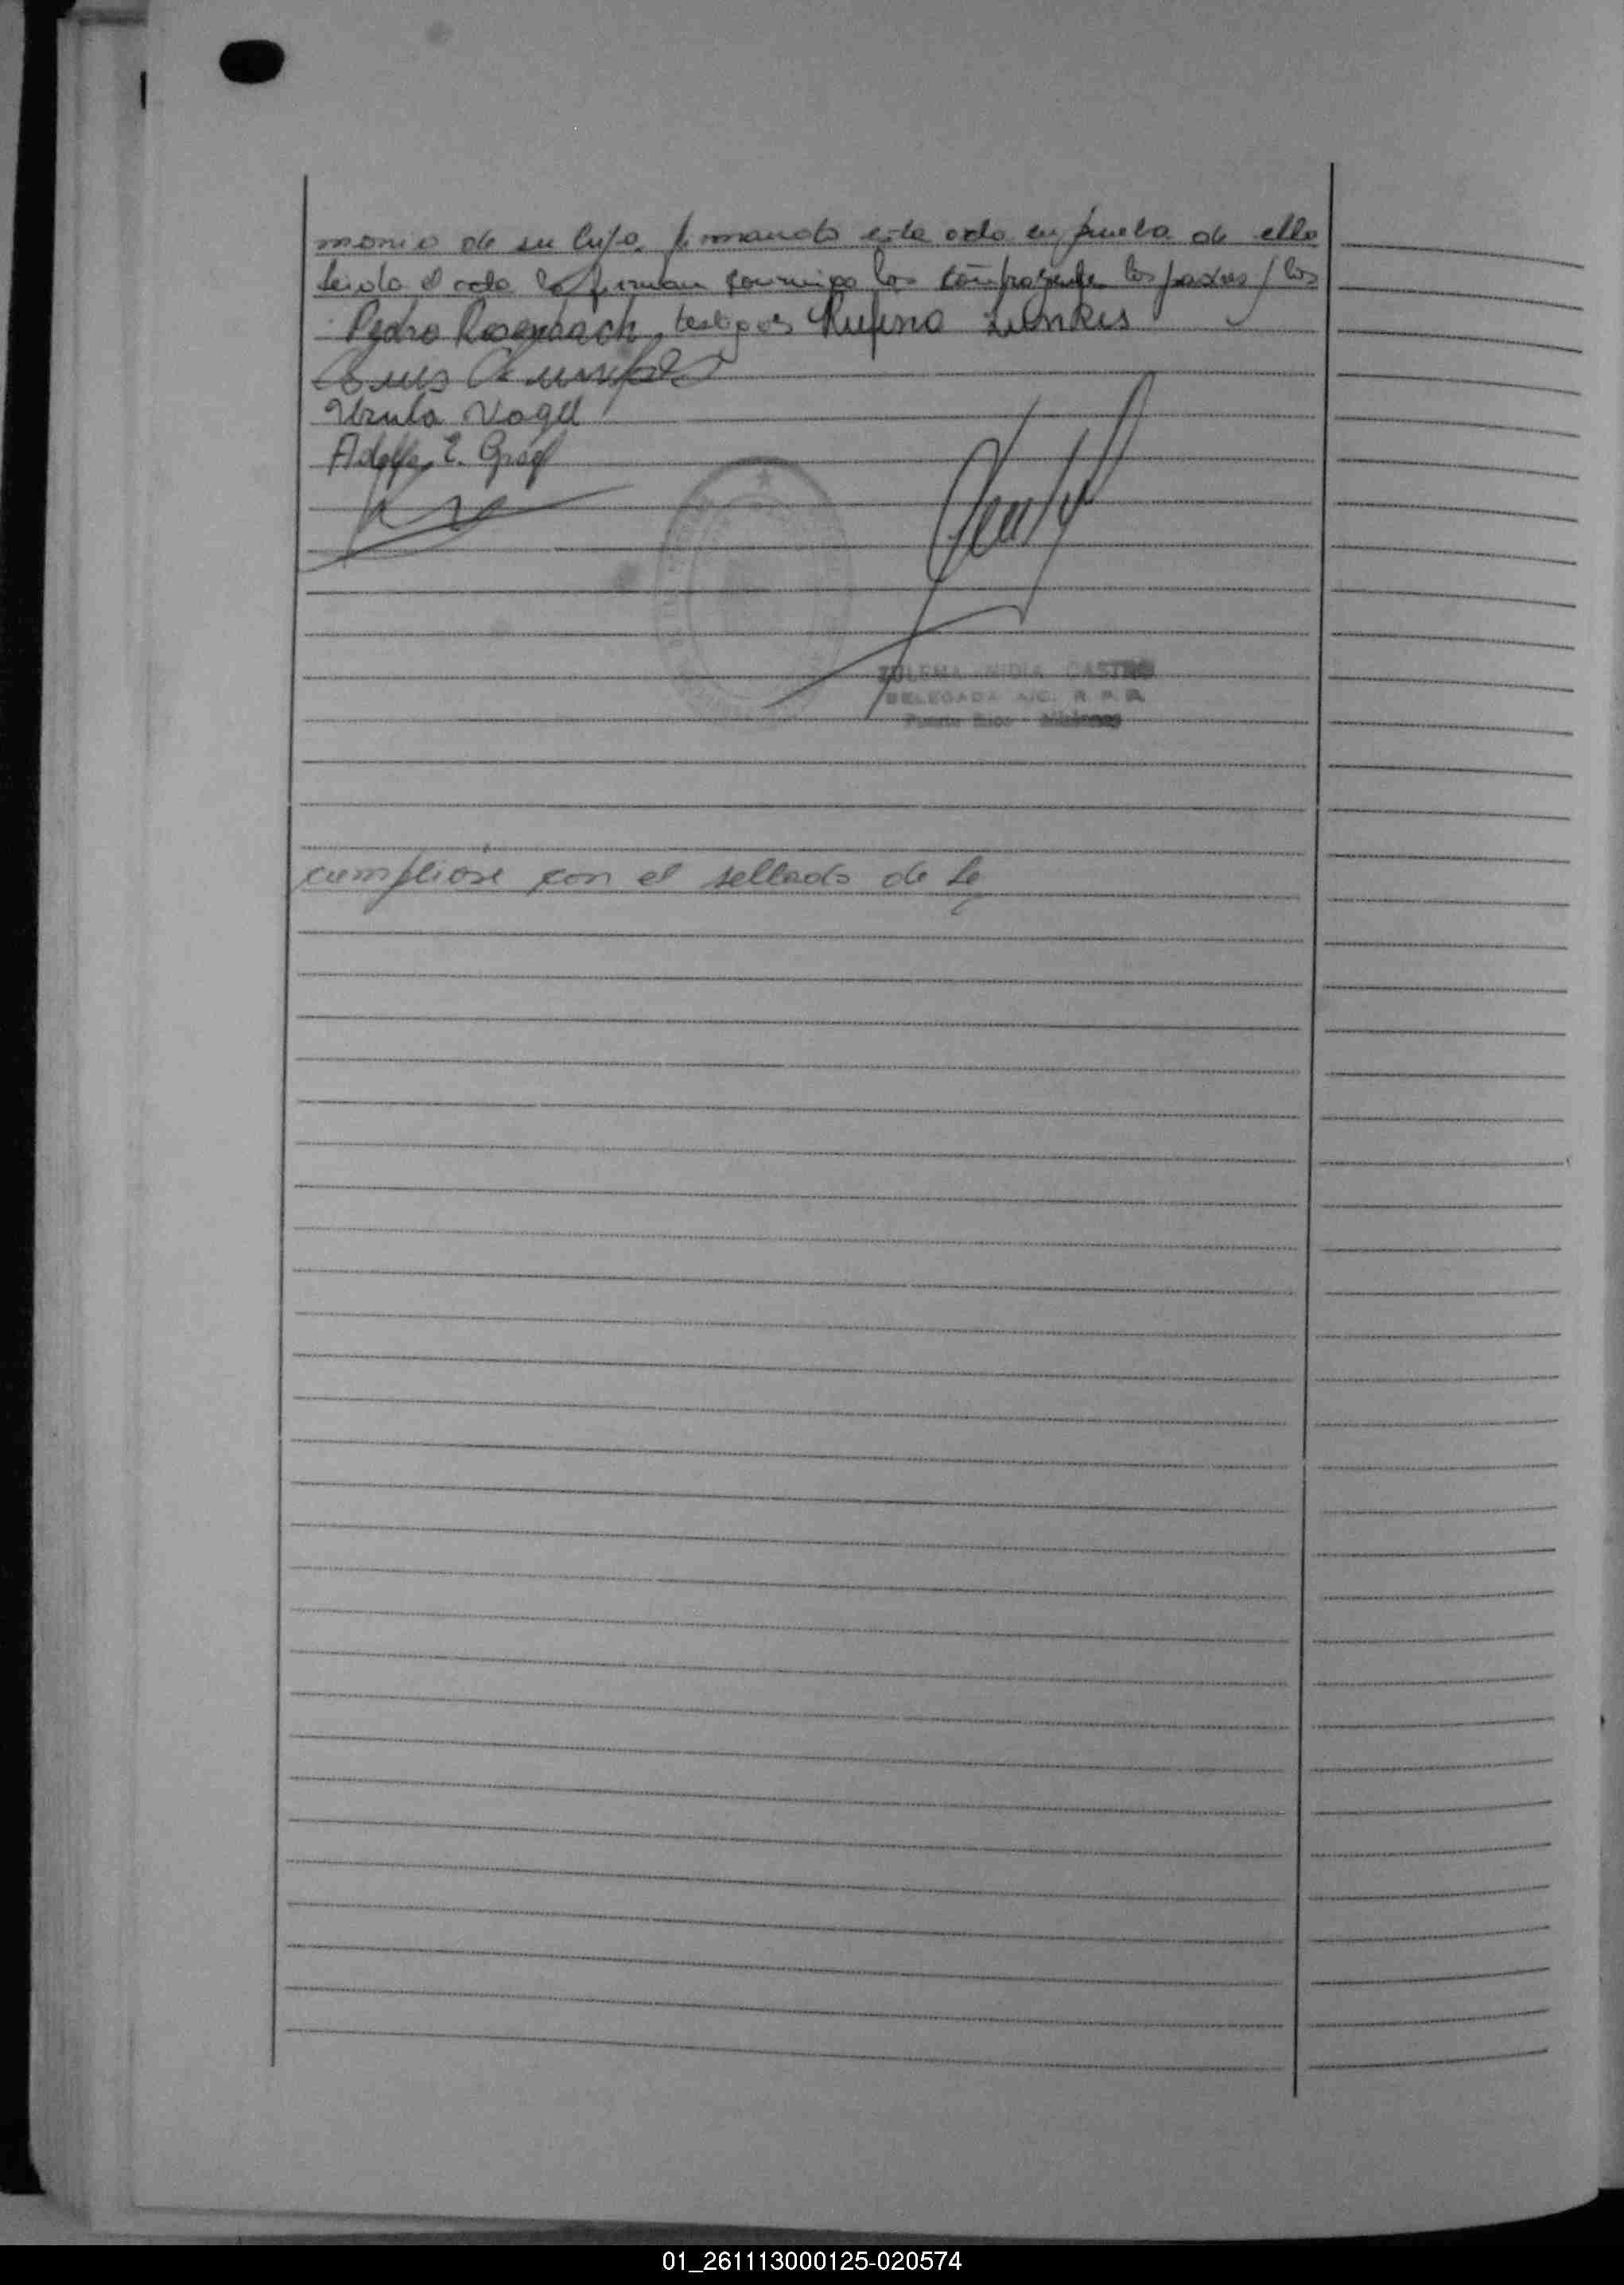 monio de su hija firmando este acta en prueba de ello
Leida el acta la firman conmigo los contrayentes los padres y los
Pedro Rosenbach testigos Rufina Lunkes
Luis
Ursula Vogel
Adolfo E. Graef
ZULEMA NIDIA CASTRO
DELEGADA A/C. R. P. P.
Puerto Rico - Misiones
cumpliose con el sellado de Ley
01_261113000125-020574